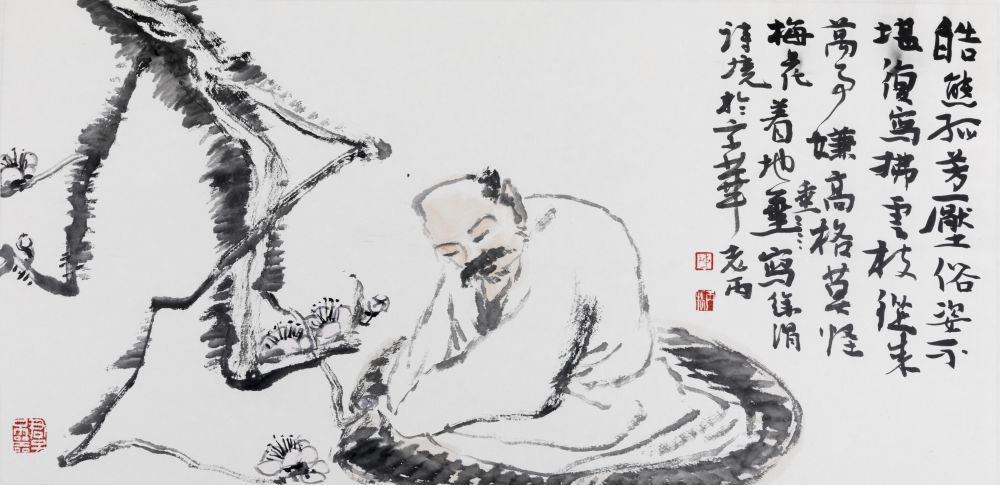 皓態孤芳壓俗姿不
堪復寫拂雲枝從来
萬事嫌高格莫怪
梅花着地垂寫徐渭
垂
詩境於京華 老丙